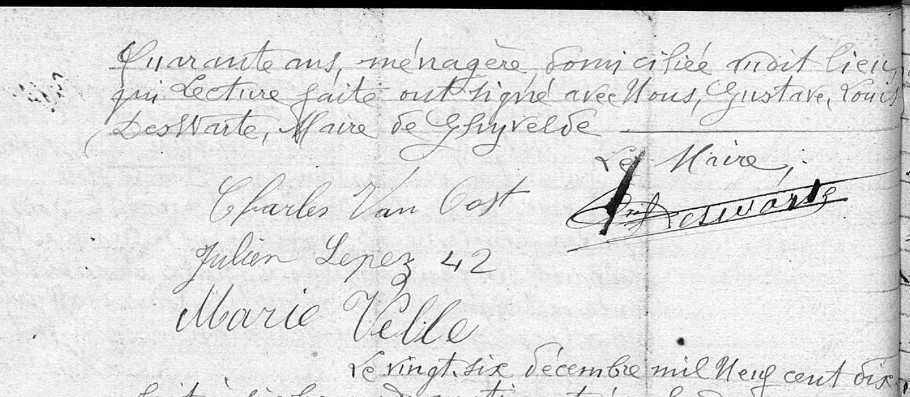 Quarante ans, ménagère, domiciliée audit lieu,
qui Lecture faite ont signé avec Nous, Gustave, Louis
DesWarte, Maire de Ghyvelde
Le Maire,
Deswarte
Charles Van Oost
Julien Lepez 42
Marie Velle
Le vingt-six décembre mil Neuf cent dix